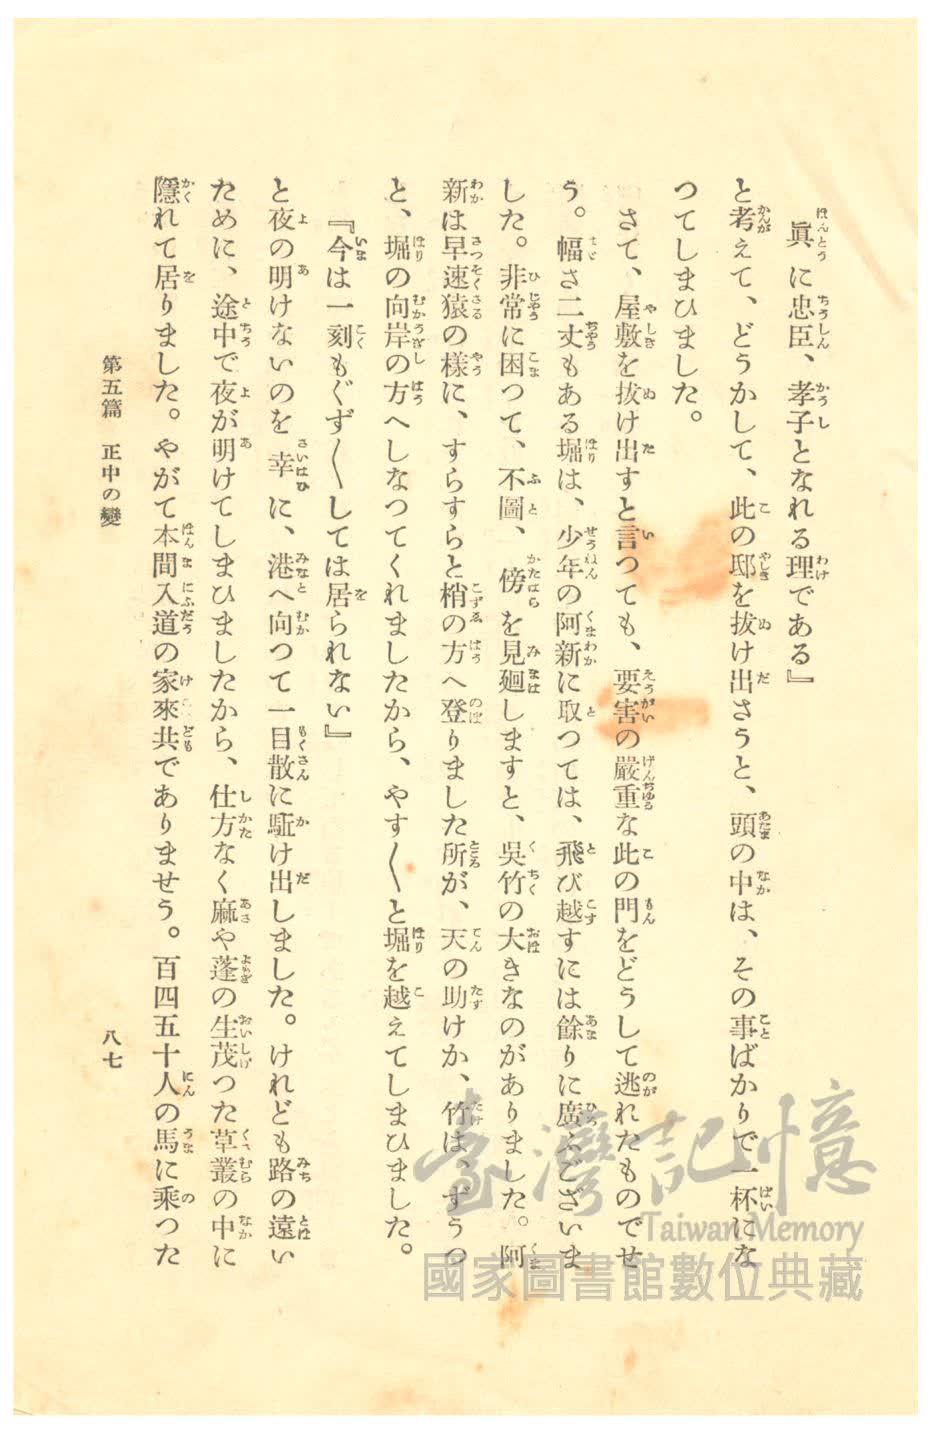 眞に忠臣、孝子となれる理である』
と考えて、どうかして、此の邸を拔け出さうと、頭の中は、その事ばかりで一杯にな
つてしまひました。
さて、屋敷を拔け出すと言つても、要害の嚴重な此の門をどうして逃れたものでせ
う。幅さ二丈もある堀は、少年の阿新に取つては、飛び越すには餘りに廣ふございま
した。非常に困つて、不圖、傍を見廻しますと、吳竹の大きなのがありました。阿
新は早速猿の樣に、すらすらと梢の方へ登りました所が、天の助けか、竹は、ずうつ
と、堀の向岸の方へしなつてくれましたから、やす〳〵と堀を越えてしまひました。
『今は一刻もぐず〳〵しては居られない』
と夜の明けないのを幸に、港へ向つて一目散に駈け出しました。けれども路の遠い
ために、途中で夜が明けてしまひましたから、仕方なく麻や蓬の生茂つた草叢の中に
隱れて居りました。やがて本間入道の家來共でありませう。百四五十人の馬に乘つた
第五篇 正中の變
八七
臺灣記憶
Taiwan Memory
國家圖書館數位典藏